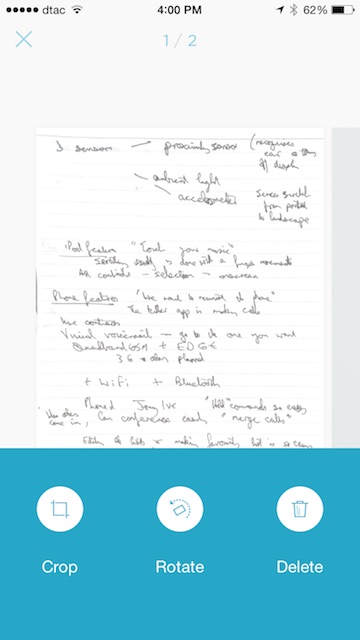 dtac 4:00 PM 62%
1 / 2
3 sensors proximity sensor (recognises
ear
ambient light
accelerometer
Screen switch
from portrait
to landscape
iPod features "Touch your music"
Scrolling is done with a finger movements
All controls - selection - onscreen
Phone features "We want to reinvent the phone"
The killer app is making calls
Use contacts
Visual voicemail - go to the one you want
Quadband GSM + EDGE
3G planned
+ WiFi + Bluetooth
Phoned Jony Ive "Hold" commands so
come in, Can conference easily "merge calls"
making favourites but is so
Crop Rotate Delete